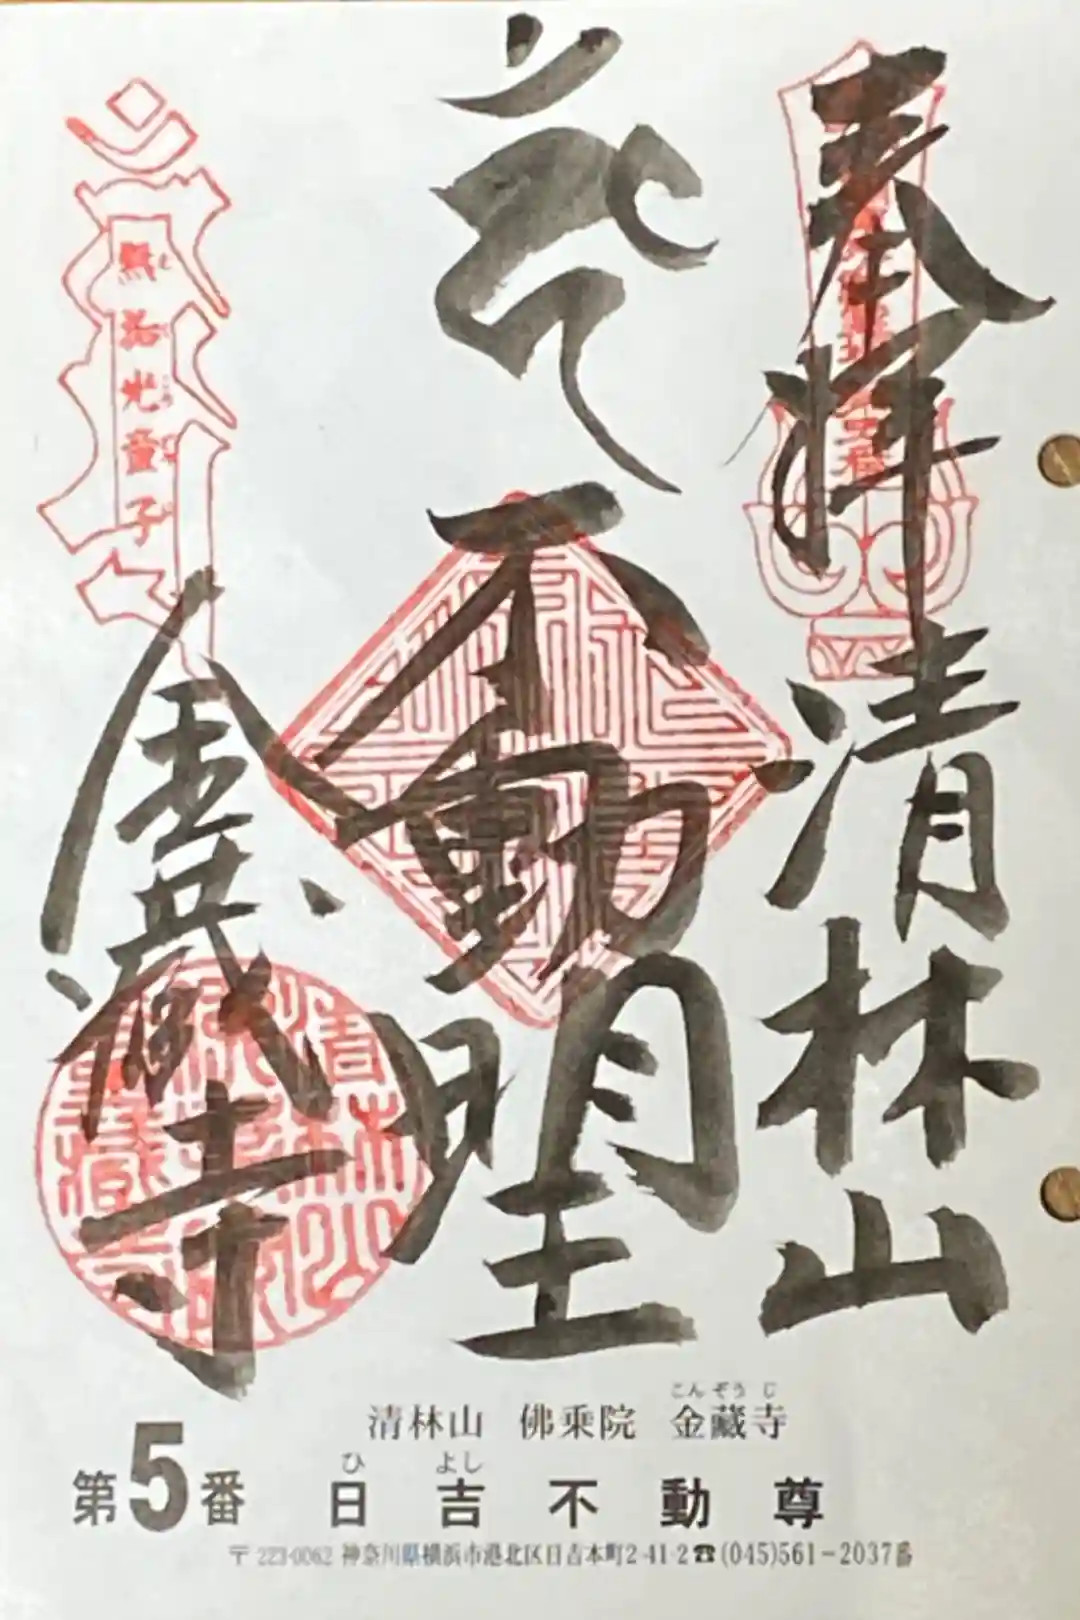 奉拝
清林山
不動明王
金藏寺
清林山 佛乗院 金藏寺
こんぞうじ
第5番 日吉不動尊
ひ よし
〒223-0062 神奈川県横浜市港北区日吉本町2-41-2☎(045)561-2037番